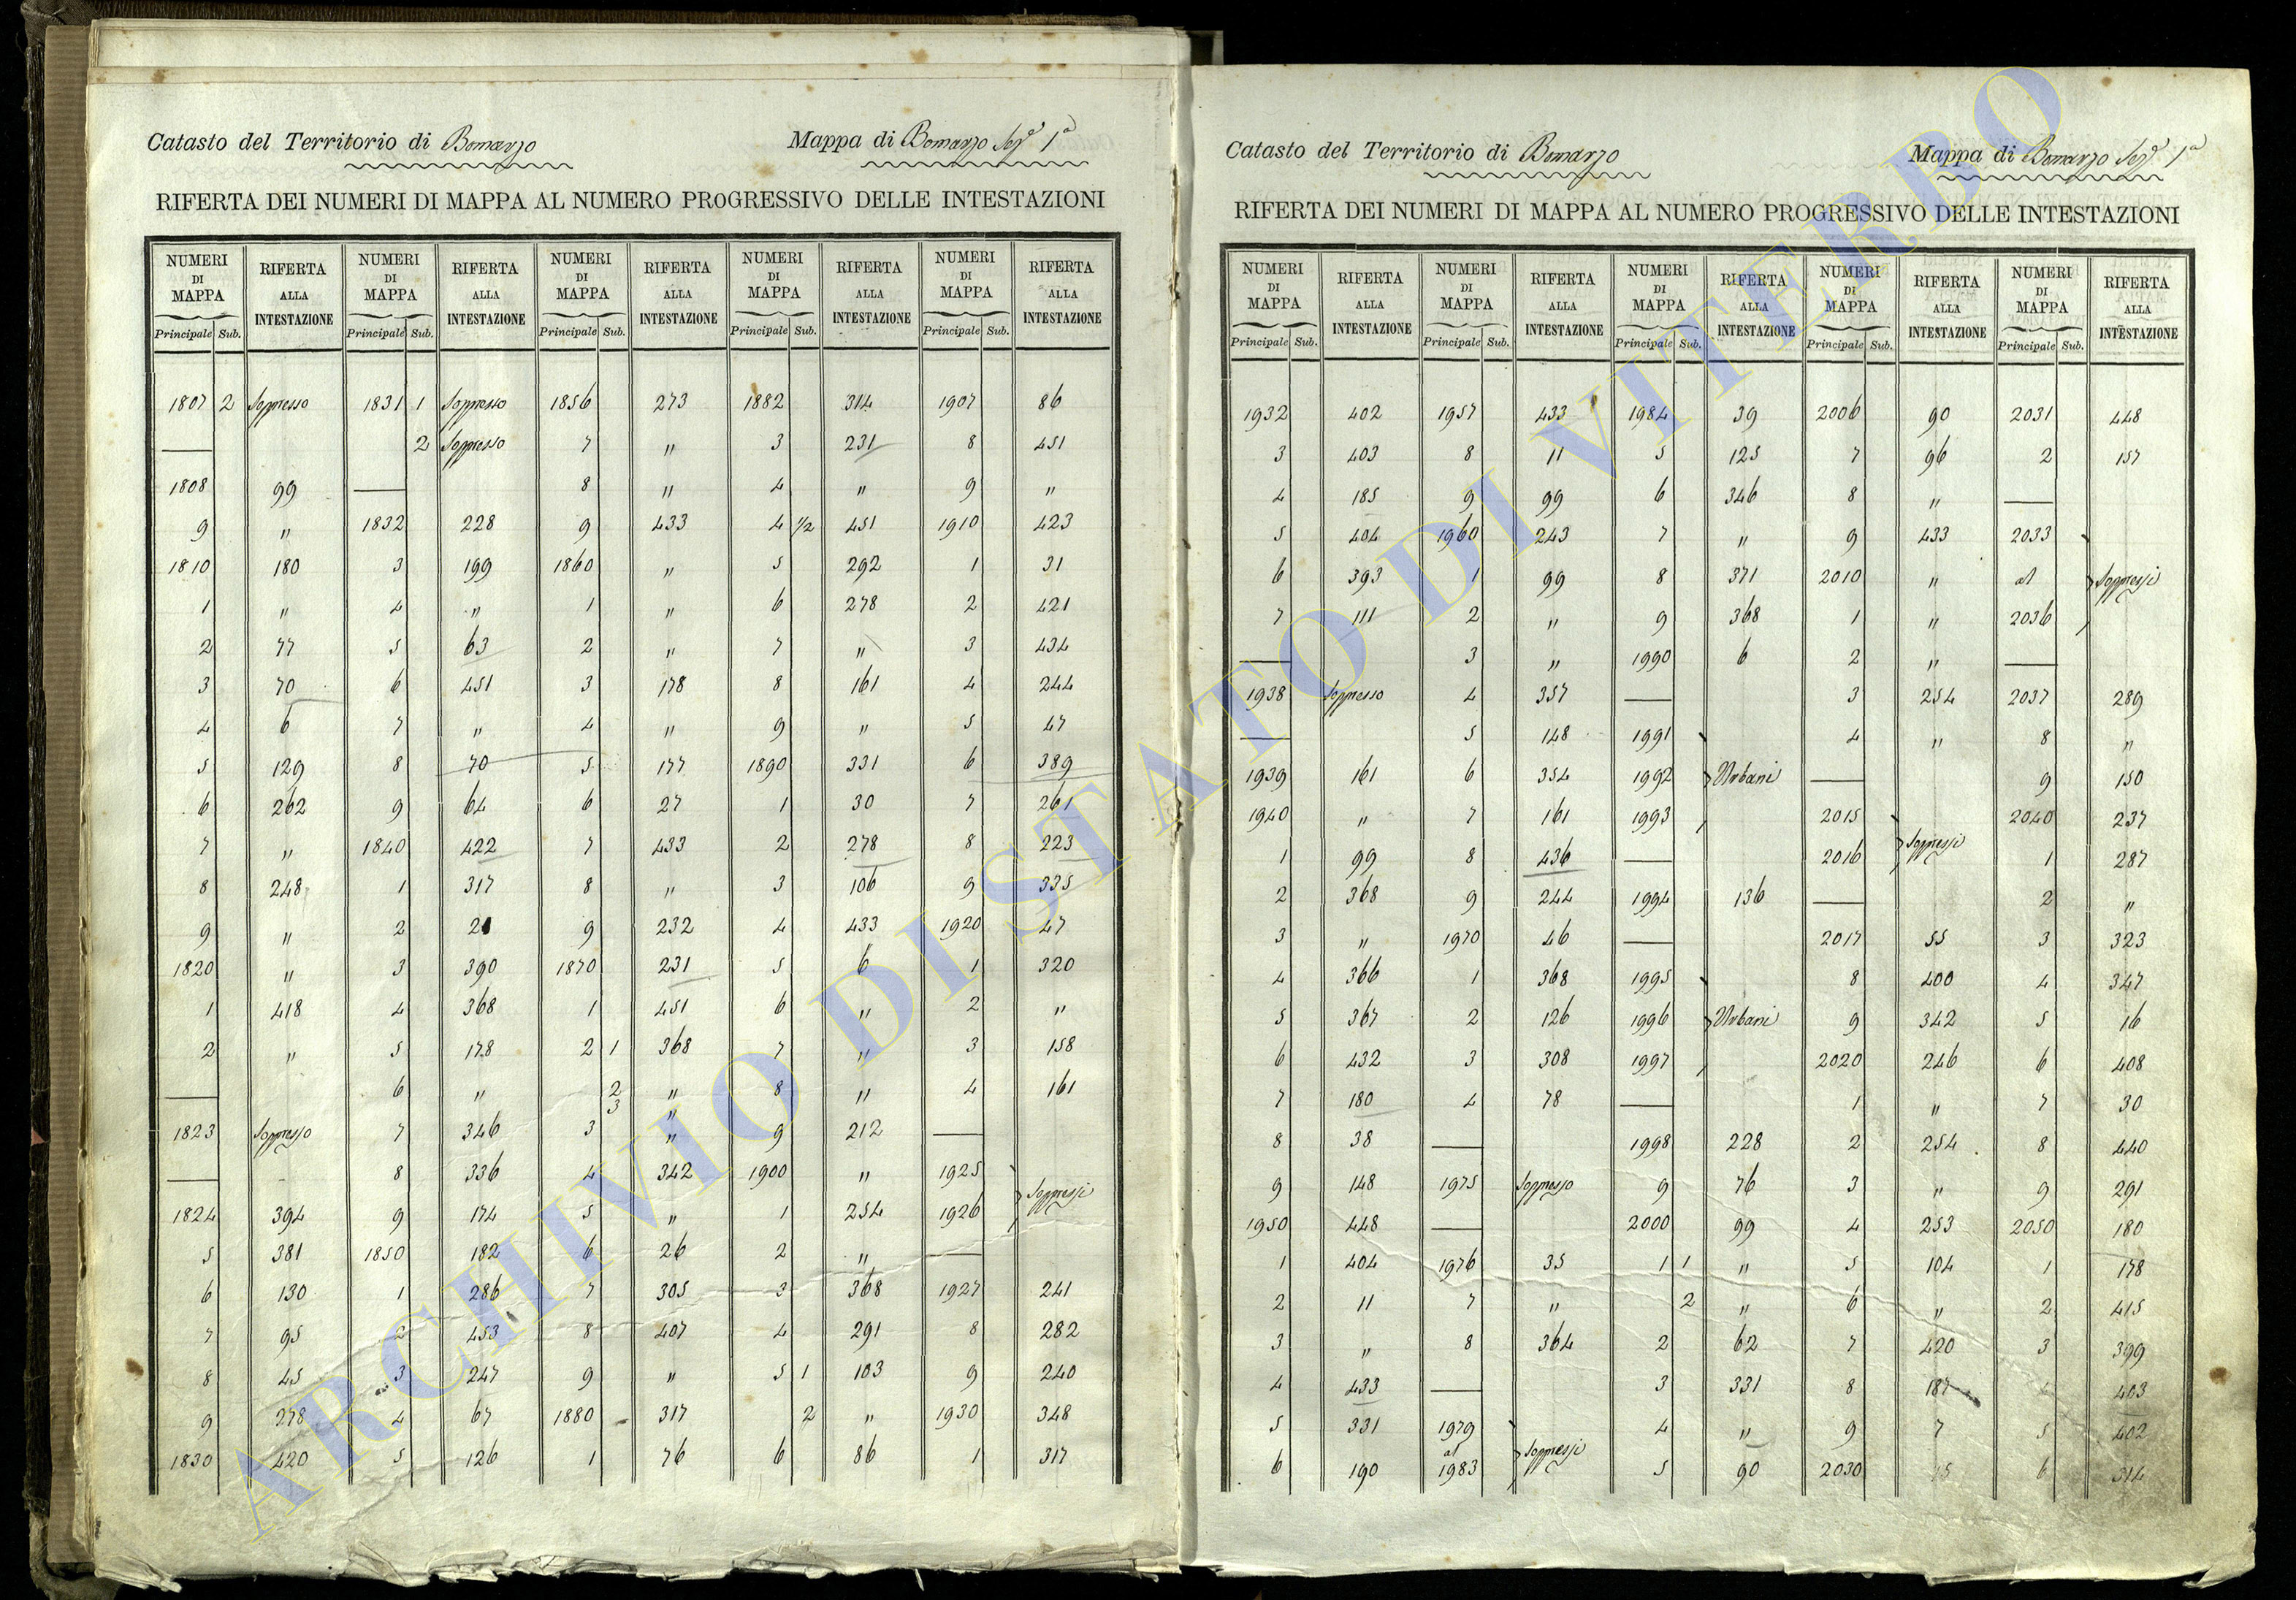 Catasto del Territorio di Bomarzo Mappa di Bomarzo Sez.e 1a
RIFERTA DEI NUMERI DI MAPPA AL NUMERO PROGRESSIVO DELLE INTESTAZIONI
NUMERI DI MAPPA RIFERTA ALLA INTESTAZIONE NUMERI DI MAPPA RIFERTA ALLA INTESTAZIONE NUMERI DI MAPPA RIFERTA ALLA INTESTAZIONE NUMERI DI MAPPA RIFERTA ALLA INTESTAZIONE NUMERI DI MAPPA RIFERTA ALLA INTESTAZIONE
Principale Sub. Principale Sub. Principale Sub. Principale Sub. Principale Sub.
1807 2 Soppresso 1831 1 Soppresso 1856 273 1882 314 1907 86
— 2 Soppresso 7 " 3 231 8 451
1808 99 — 8 " 4 " 9 "
9 " 1832 228 9 433 4 1/2 451 1910 423
1810 180 3 199 1860 " 5 292 1 31
1 " 4 " 1 " 6 278 2 421
2 77 5 63 2 " 7 " 3 434
3 70 6 451 3 178 8 161 4 244
4 6 7 " 4 " 9 " 5 47
5 129 8 70 5 177 1890 331 6 389
6 262 9 64 6 27 1 30 7 261
7 " 1840 422 7 433 2 278 8 223
8 248 1 317 8 " 3 106 9 335
9 " 2 9 232 4 433 1920 47
1820 " 3 390 1870 231 5 6 1 320
1 418 4 368 1 451 6 " 2 "
2 " 5 178 2 1 368 7 " 3 158
— 6 " 2 " 8 " 4 161
3 "
1823 Soppresso 7 346 3 " 9 212 —
— 8 336 4 342 1900 " 1925
1824 394 9 174 5 " 1 254 1926 Soppressi
5 381 1850 182 6 26 2 " —
6 130 1 286 7 305 3 368 1927 241
7 95 2 453 8 407 4 291 8 282
8 45 3 247 9 " 5 1 103 9 240
9 278 4 67 1880 317 2 " 1930 348
1830 420 5 126 1 76 6 86 1 317
Catasto del Territorio di Bomarzo Mappa di Bomarzo Sez.e 1a
RIFERTA DEI NUMERI DI MAPPA AL NUMERO PROGRESSIVO DELLE INTESTAZIONI
NUMERI DI MAPPA RIFERTA ALLA INTESTAZIONE NUMERI DI MAPPA RIFERTA ALLA INTESTAZIONE NUMERI DI MAPPA RIFERTA ALLA INTESTAZIONE NUMERI DI MAPPA RIFERTA ALLA INTESTAZIONE NUMERI DI MAPPA RIFERTA ALLA INTESTAZIONE
Principale Sub. Principale Sub. Principale Sub. Principale Sub. Principale Sub.
1932 402 1957 433 1984 39 2006 90 2031 448
3 403 8 11 5 125 7 96 2 157
4 185 9 99 6 346 8 " —
5 404 1960 243 7 " 9 433 2033
6 393 1 99 8 371 2010 " al Soppressi
7 111 2 " 9 368 1 " 2036
— 3 " 1990 6 2 " —
1938 Soppresso 4 357 — 3 254 2037 289
— 5 148 1991 4 " 8 "
1939 161 6 354 1992 Urbani — 9 150
1940 " 7 161 1993 2015 2040 237
1 99 8 436 — 2016 Soppressi 1 287
2 368 9 244 1994 136 — 2 "
3 " 1970 46 — 2017 55 3 323
4 366 1 368 1995 8 400 4 347
5 367 2 126 1996 Urbani 9 342 5 16
6 432 3 308 1997 2020 246 6 408
7 180 4 78 — 1 " 7 30
8 38 — 1998 228 2 254 8 440
9 148 1975 Soppresso 9 76 3 " 9 291
1950 448 — 2000 99 4 253 2050 180
1 404 1976 35 1 1 " 5 104 1 178
2 11 7 " 2 " 6 " 2 415
3 " 8 364 2 62 7 420 3 399
4 433 — 3 331 8 187 4 403
5 331 1979 4 " 9 7 5 402
al Soppressi
6 190 1983 5 90 2030 6 314
ARCHIVIO DI STATO DI VITERBO